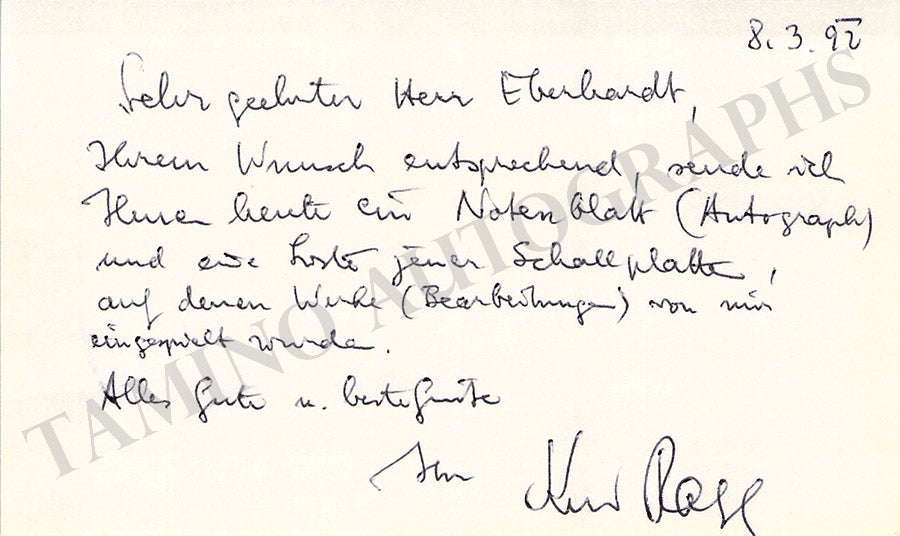 8. 3. 92
Sehr geehrter Herr Eberhardt,
Ihrem Wunsch entsprechend, sende ich
Ihnen heute ein Notenblatt (Autograph)
und eine Liste jener Schallplatten,
auf denen Werke (Bearbeitungen) von mir
eingespielt wurden.
Alles Gute u. beste Grüße
Ihr
TAMINO AUTOGRAPHS